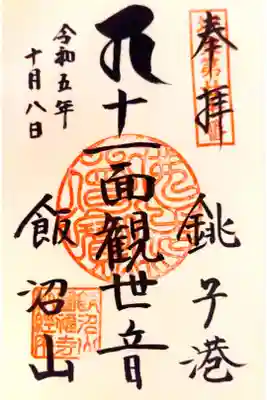 奉拝
銚子港
十一面観世音
飯沼山
令和五年
十月八日